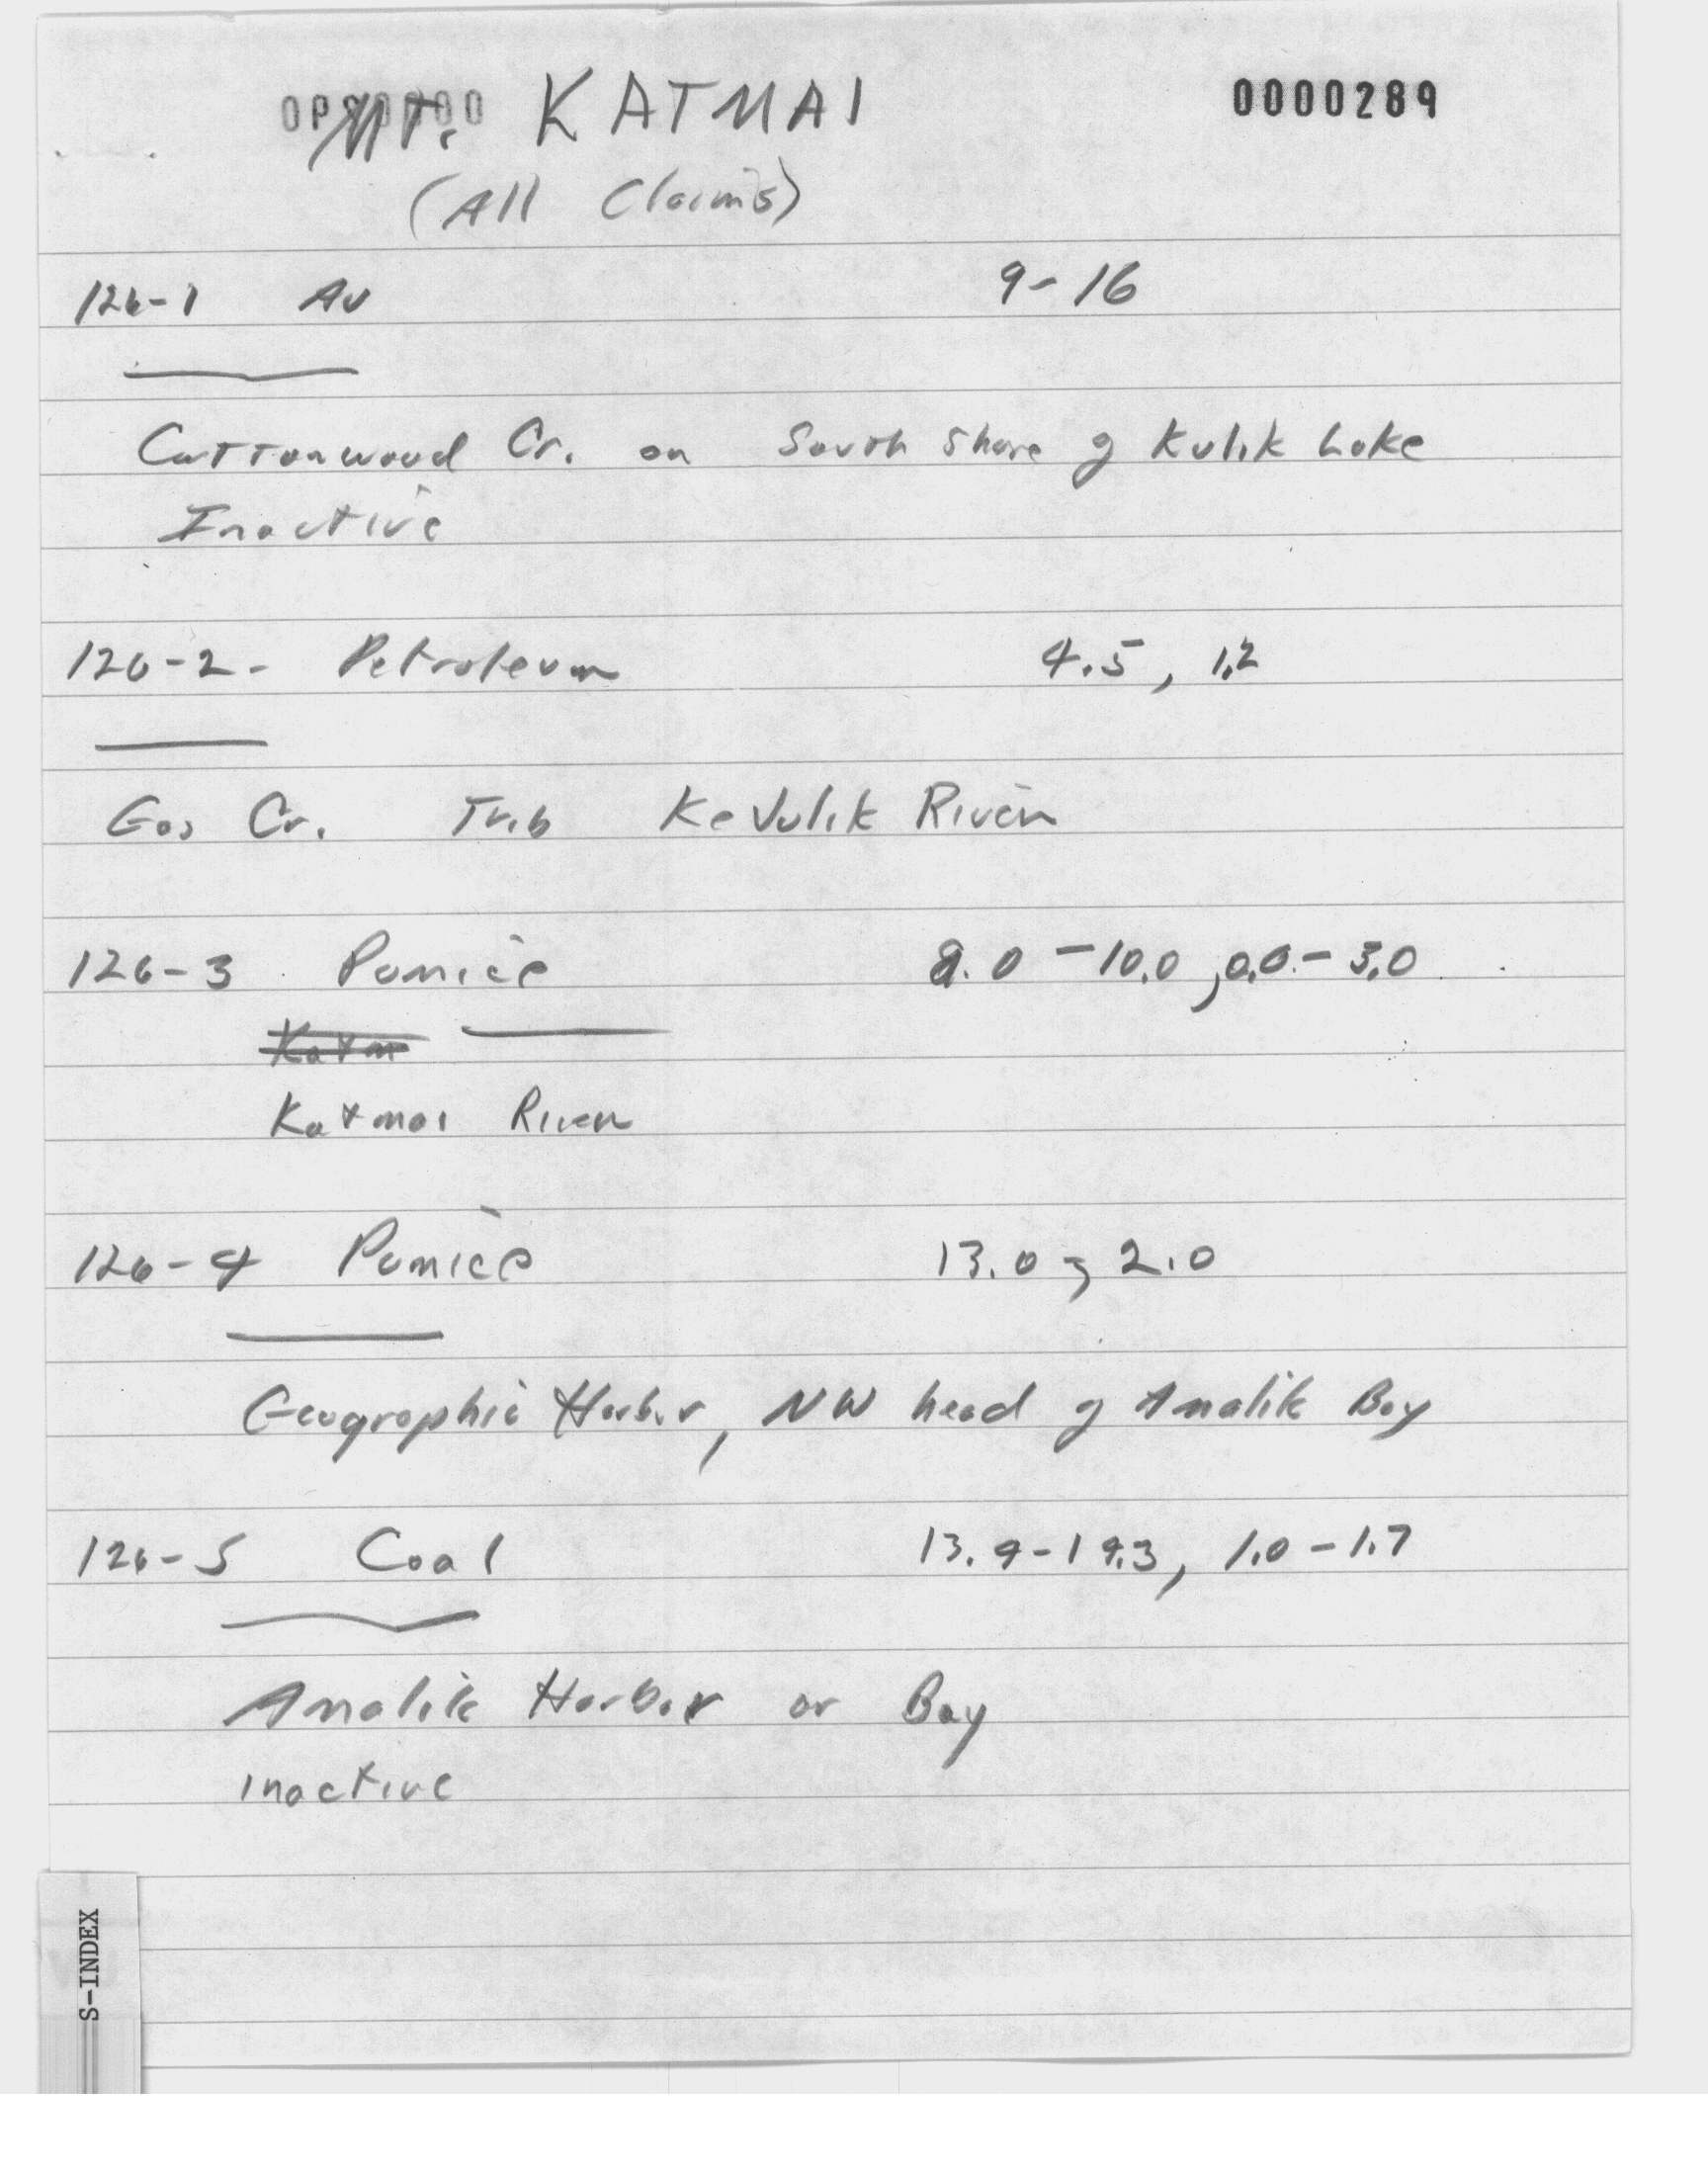 MT. KATMAI 0000289
(All Claims)
126-1 Au 9-16
Cottonwood Cr. on South Shore of Kulik Lake
Inactive
126-2- Petroleum 4.5, 1.2
Gas Cr. Trib Kejulik River
126-3 Pumice 8.0-10.0, 0.0-3.0
Katm
Katmai River
126-4 Pumice 13.0, 2.0
Geographic Harbor, NW head of Amalik Bay
126-5 Coal 1.0-1.7
Amalik Harbor or Bay
inactive
S-INDEX